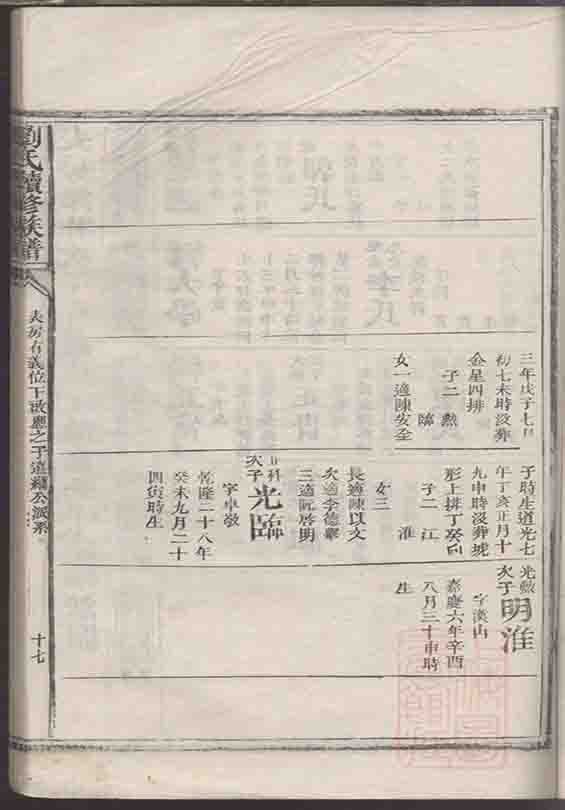 三年戊子七月
初七未時沒葬
金星四排
子二 勲
臨
女一適陳安全
子時生道光七
年丁亥正月十
九申時沒葬坡
形上排丁癸向
子二 江
淮
女三
長適陳以文
次適李德舉
三適阮啓明
次子光臨
字卓敬
乾隆二十八年
癸未九月二十
四寅時生
光勲
次子明淮
字漢山
嘉慶六年辛酉
八月三十申時
生
劉氏續修族譜
十七